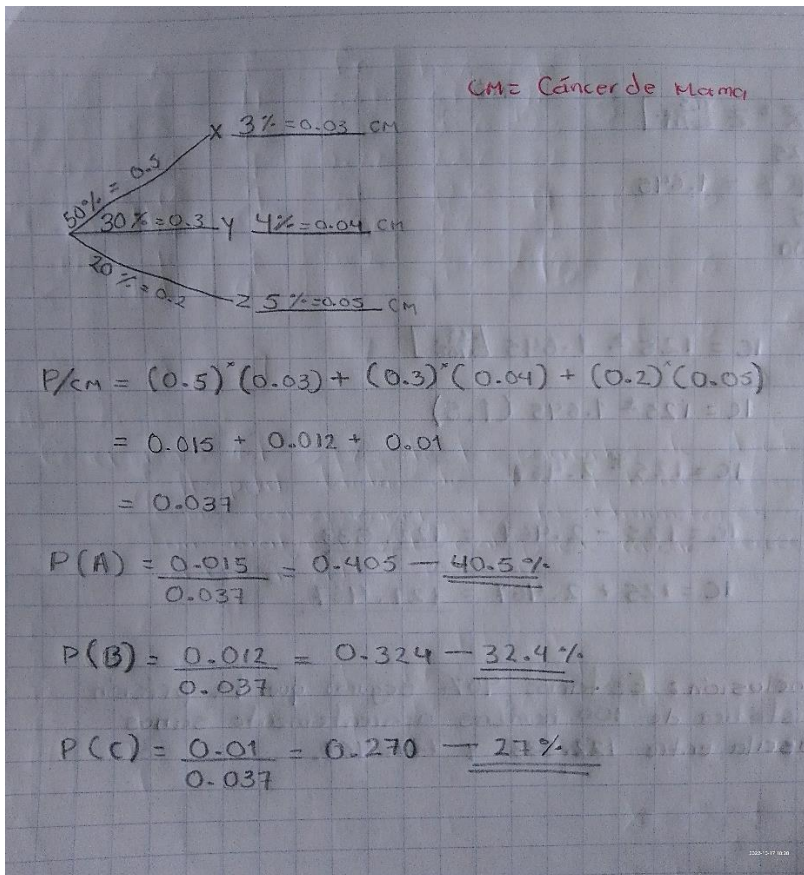 CM= Cáncer de Mama
50% = 0.5 X 3% = 0.03 CM
30% = 0.3 Y 4% = 0.04 CM
20% = 0.2 Z 5% = 0.05 CM
P/CM = (0.5)*(0.03) + (0.3)*(0.04) + (0.2)*(0.05)
= 0.015 + 0.012 + 0.01
= 0.037
P(A) = 0.015 / 0.037 = 0.405 — 40.5%
P(B) = 0.012 / 0.037 = 0.324 — 32.4%
P(C) = 0.01 / 0.037 = 0.270 — 27%